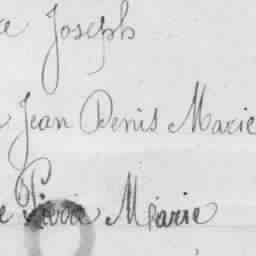 Joseph
Jean Denis Marie
Pierre Marie